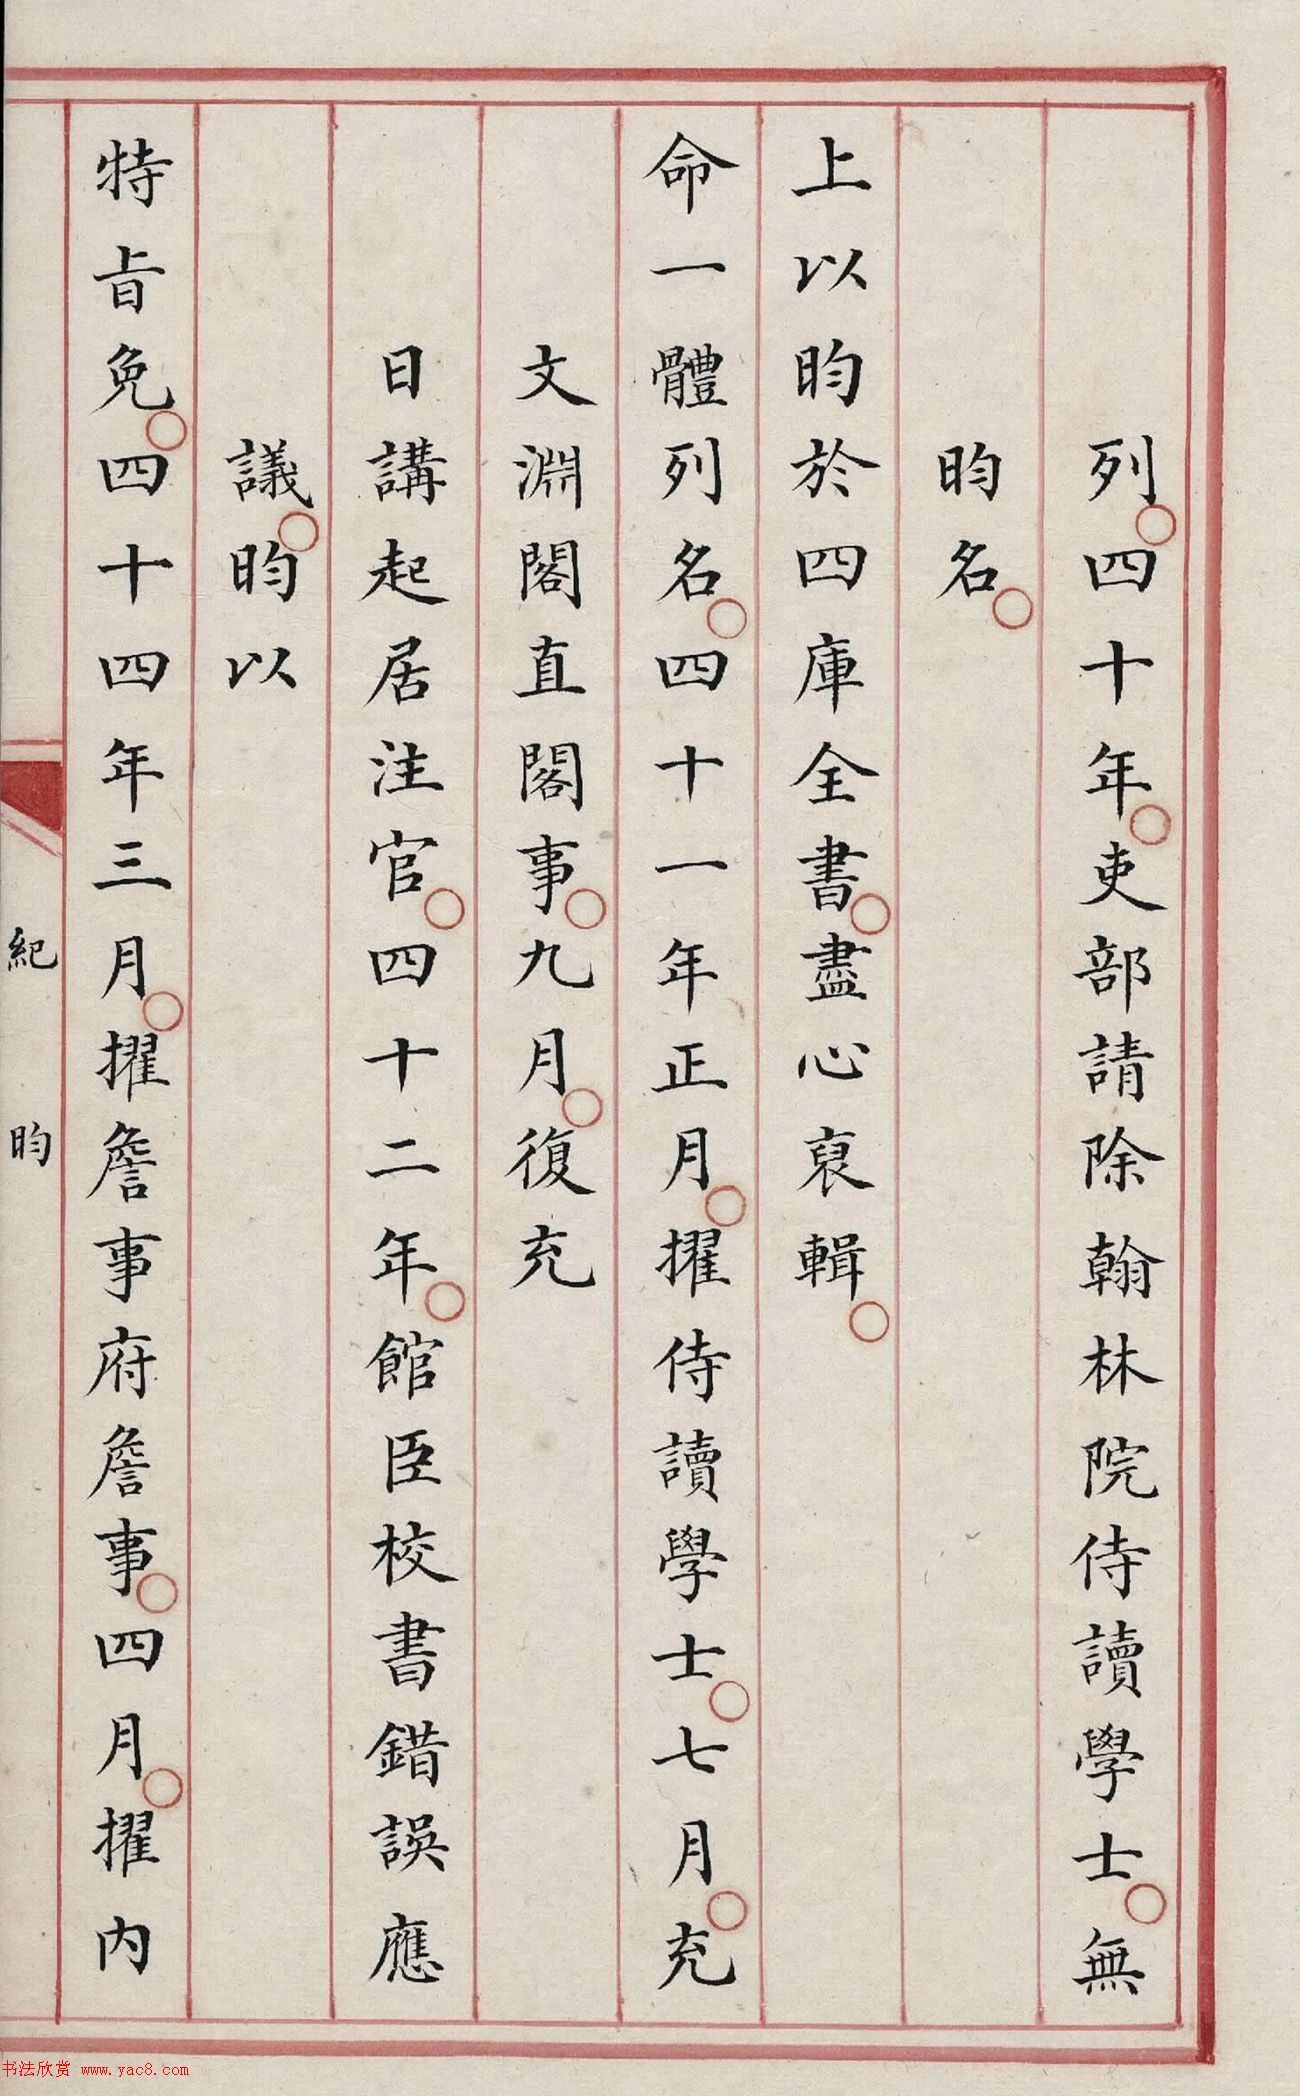 列。四十年。吏部請除翰林院侍讀學士。無
昀名。
上以昀於四庫全書。盡心裒輯。
命一體列名。四十一年正月。擢侍讀學士。七月。充
文淵閣直閣事。九月。復充
日講起居注官。四十二年。館臣校書錯誤應
議。昀以
特旨免。四十四年三月。擢詹事府詹事。四月。擢內
紀昀
书法欣赏 www.yac8.com